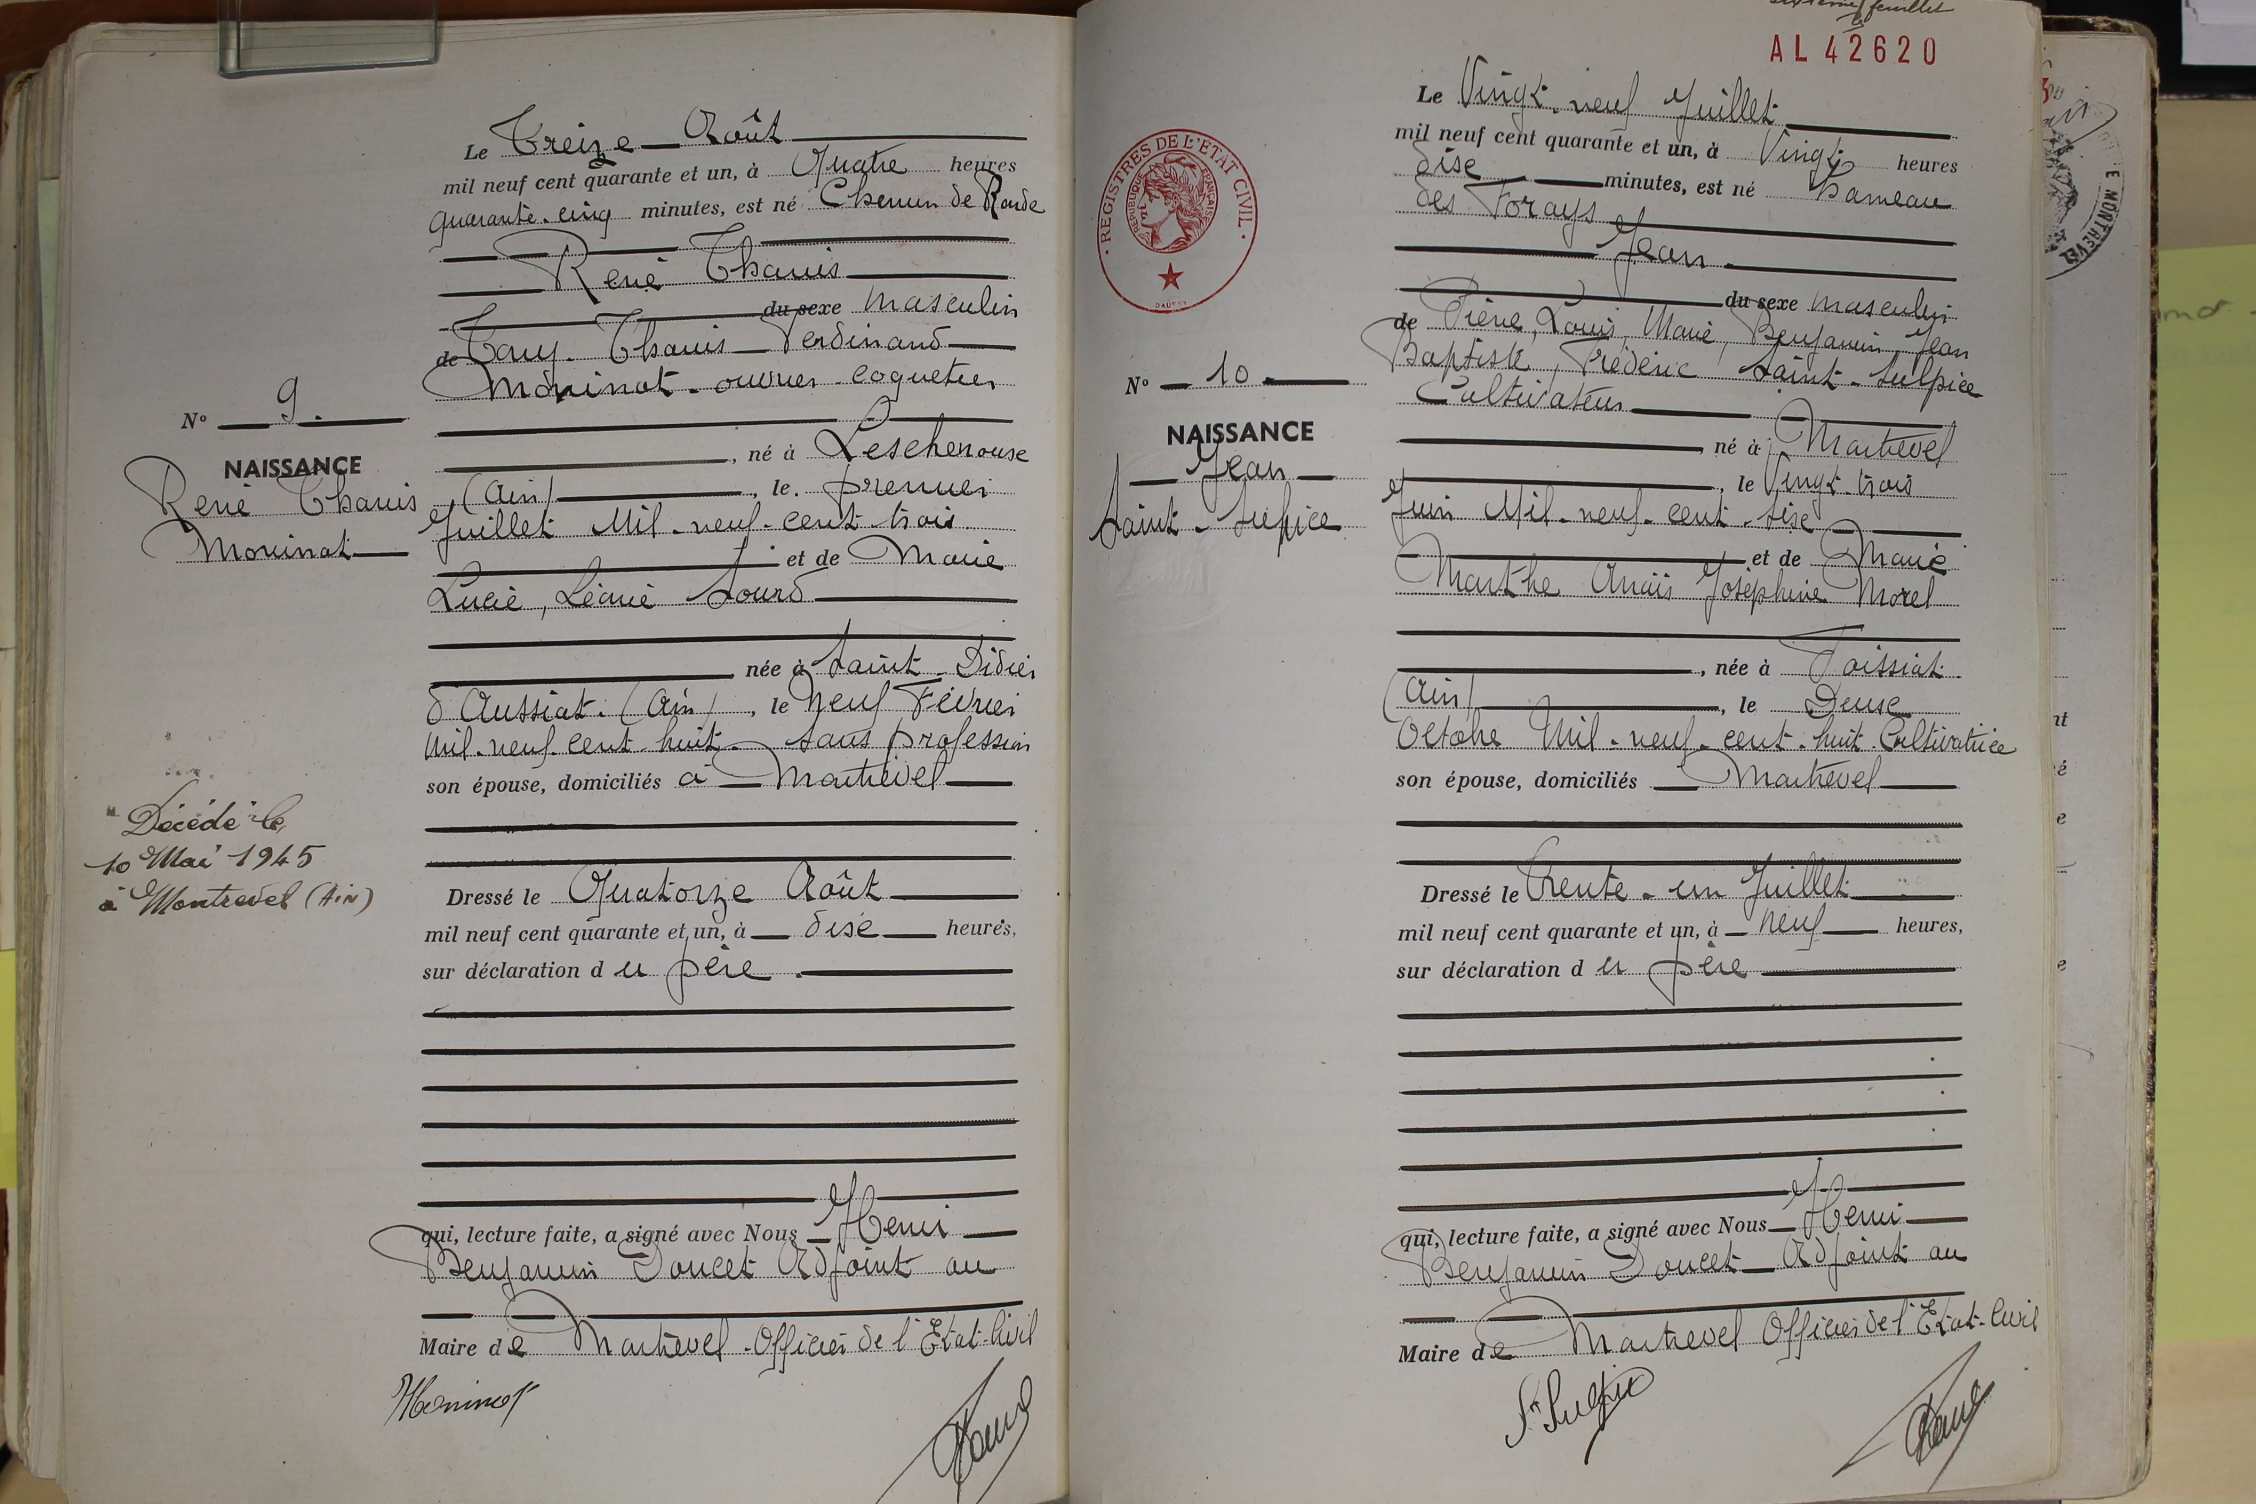 Le Treize Août
mil neuf cent quarante et un, à Quatre heures
quarante-cinq minutes, est né Chemin de Ronde
René Tharris
du sexe masculin
de Tony Tharris Ferdinand
Moninot - ouvrier coquetier
N° 9.
, né à Leschenouse
NAISSANCE
(Ain), le premier
René Tharris
Juillet Mil-neuf-cent-trois
Moninot
et de Marie
Lucie, Léonie Sourd
née à Saint-Didier
d'Aussiat. (Ain), le Neuf Février
Mil-neuf-cent-huit - sans profession
son épouse, domiciliés à Montrevel
Décédé le
10 Mai 1945
à Montrevel (Ain)
Dressé le Quatorze Août
mil neuf cent quarante et un, à dise heures,
sur déclaration du père.
qui, lecture faite, a signé avec Nous Henri
Benjamin Doucet Adjoint au
Maire de Montrevel - Officier de l'Etat-Civil
Moninot
feuillet
AL 42620
Le Vingt-neuf Juillet
mil neuf cent quarante et un, à Vingt heures
dise minutes, est né hameau
des Forays
Jean
REGISTRES DE L'ETAT CIVIL
REPUBLIQUE FRANÇAISE
du sexe masculin
de Pierre, Louis, Marie, Benjamin, Jean
Baptiste, Frédéric Saint-Sulpice
N° 10
Cultivateur
NAISSANCE
né à Montrevel
Jean
, le Vingt-trois
Saint-Sulpice
Juin Mil-neuf-cent-sise
et de Marie
Marthe Anaïs Joséphine Morel
, née à Foissiat
(Ain), le Deuse
Octobre Mil-neuf-cent-huit - Cultivatrice
son épouse, domiciliés Montrevel
Dressé le Trente-un Juillet
mil neuf cent quarante et un, à neuf heures,
sur déclaration du père
qui, lecture faite, a signé avec Nous Henri
Benjamin Doucet Adjoint au
Maire de Montrevel Officier de l'Etat-Civil
St Sulpice